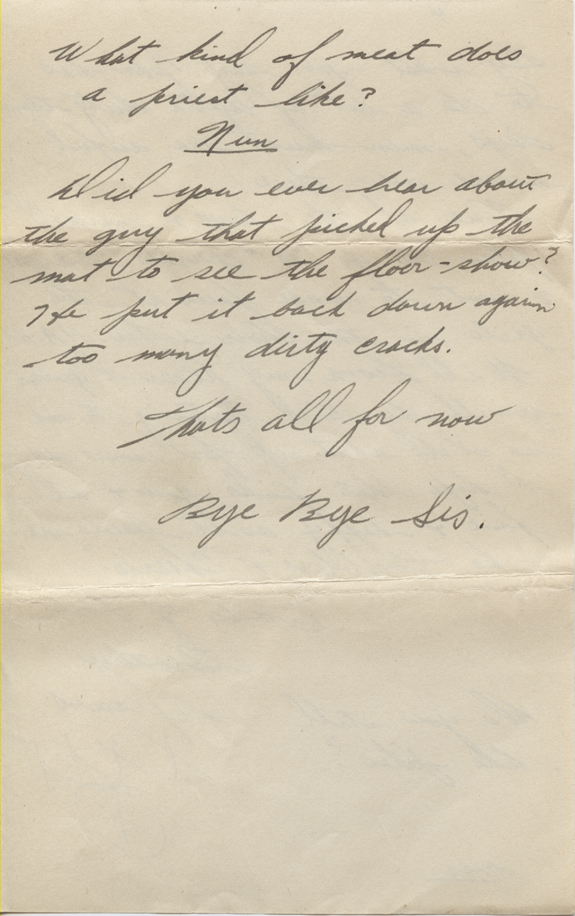 What kind of meat does
a priest like?
Nun
Did you ever hear about
the guy that picked up the
mat to see the floor-show?
He put it back down again
too many dirty cracks.
Thats all for now
Bye Bye Sis.